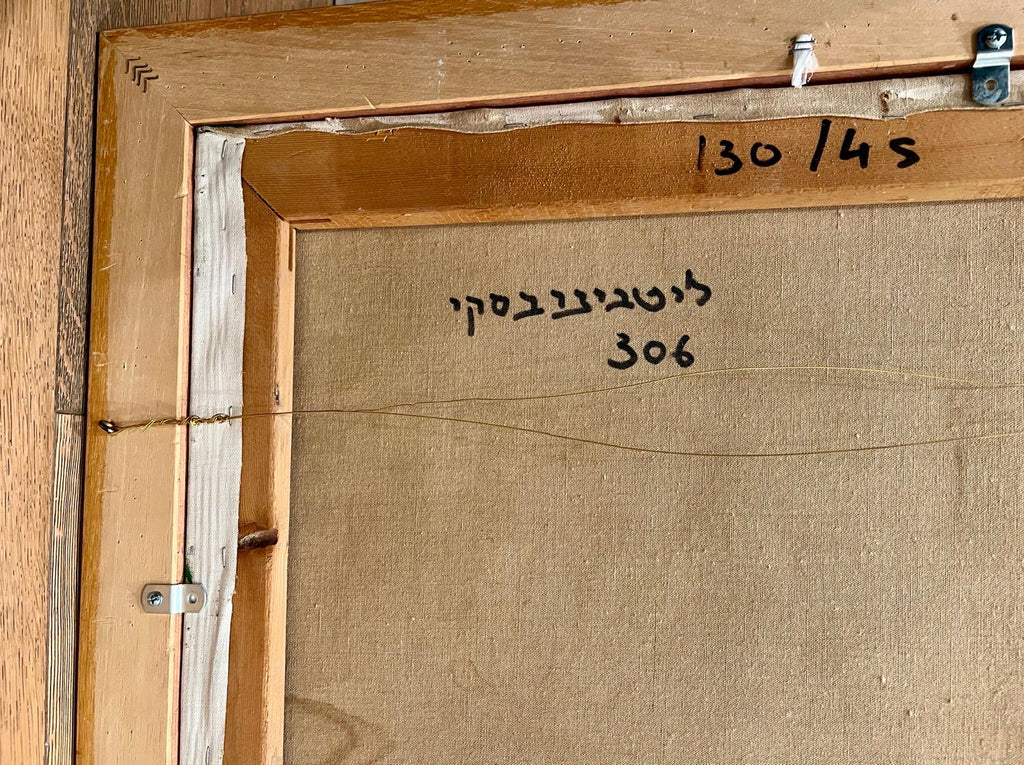 130/45
ליטבינובסקי
306